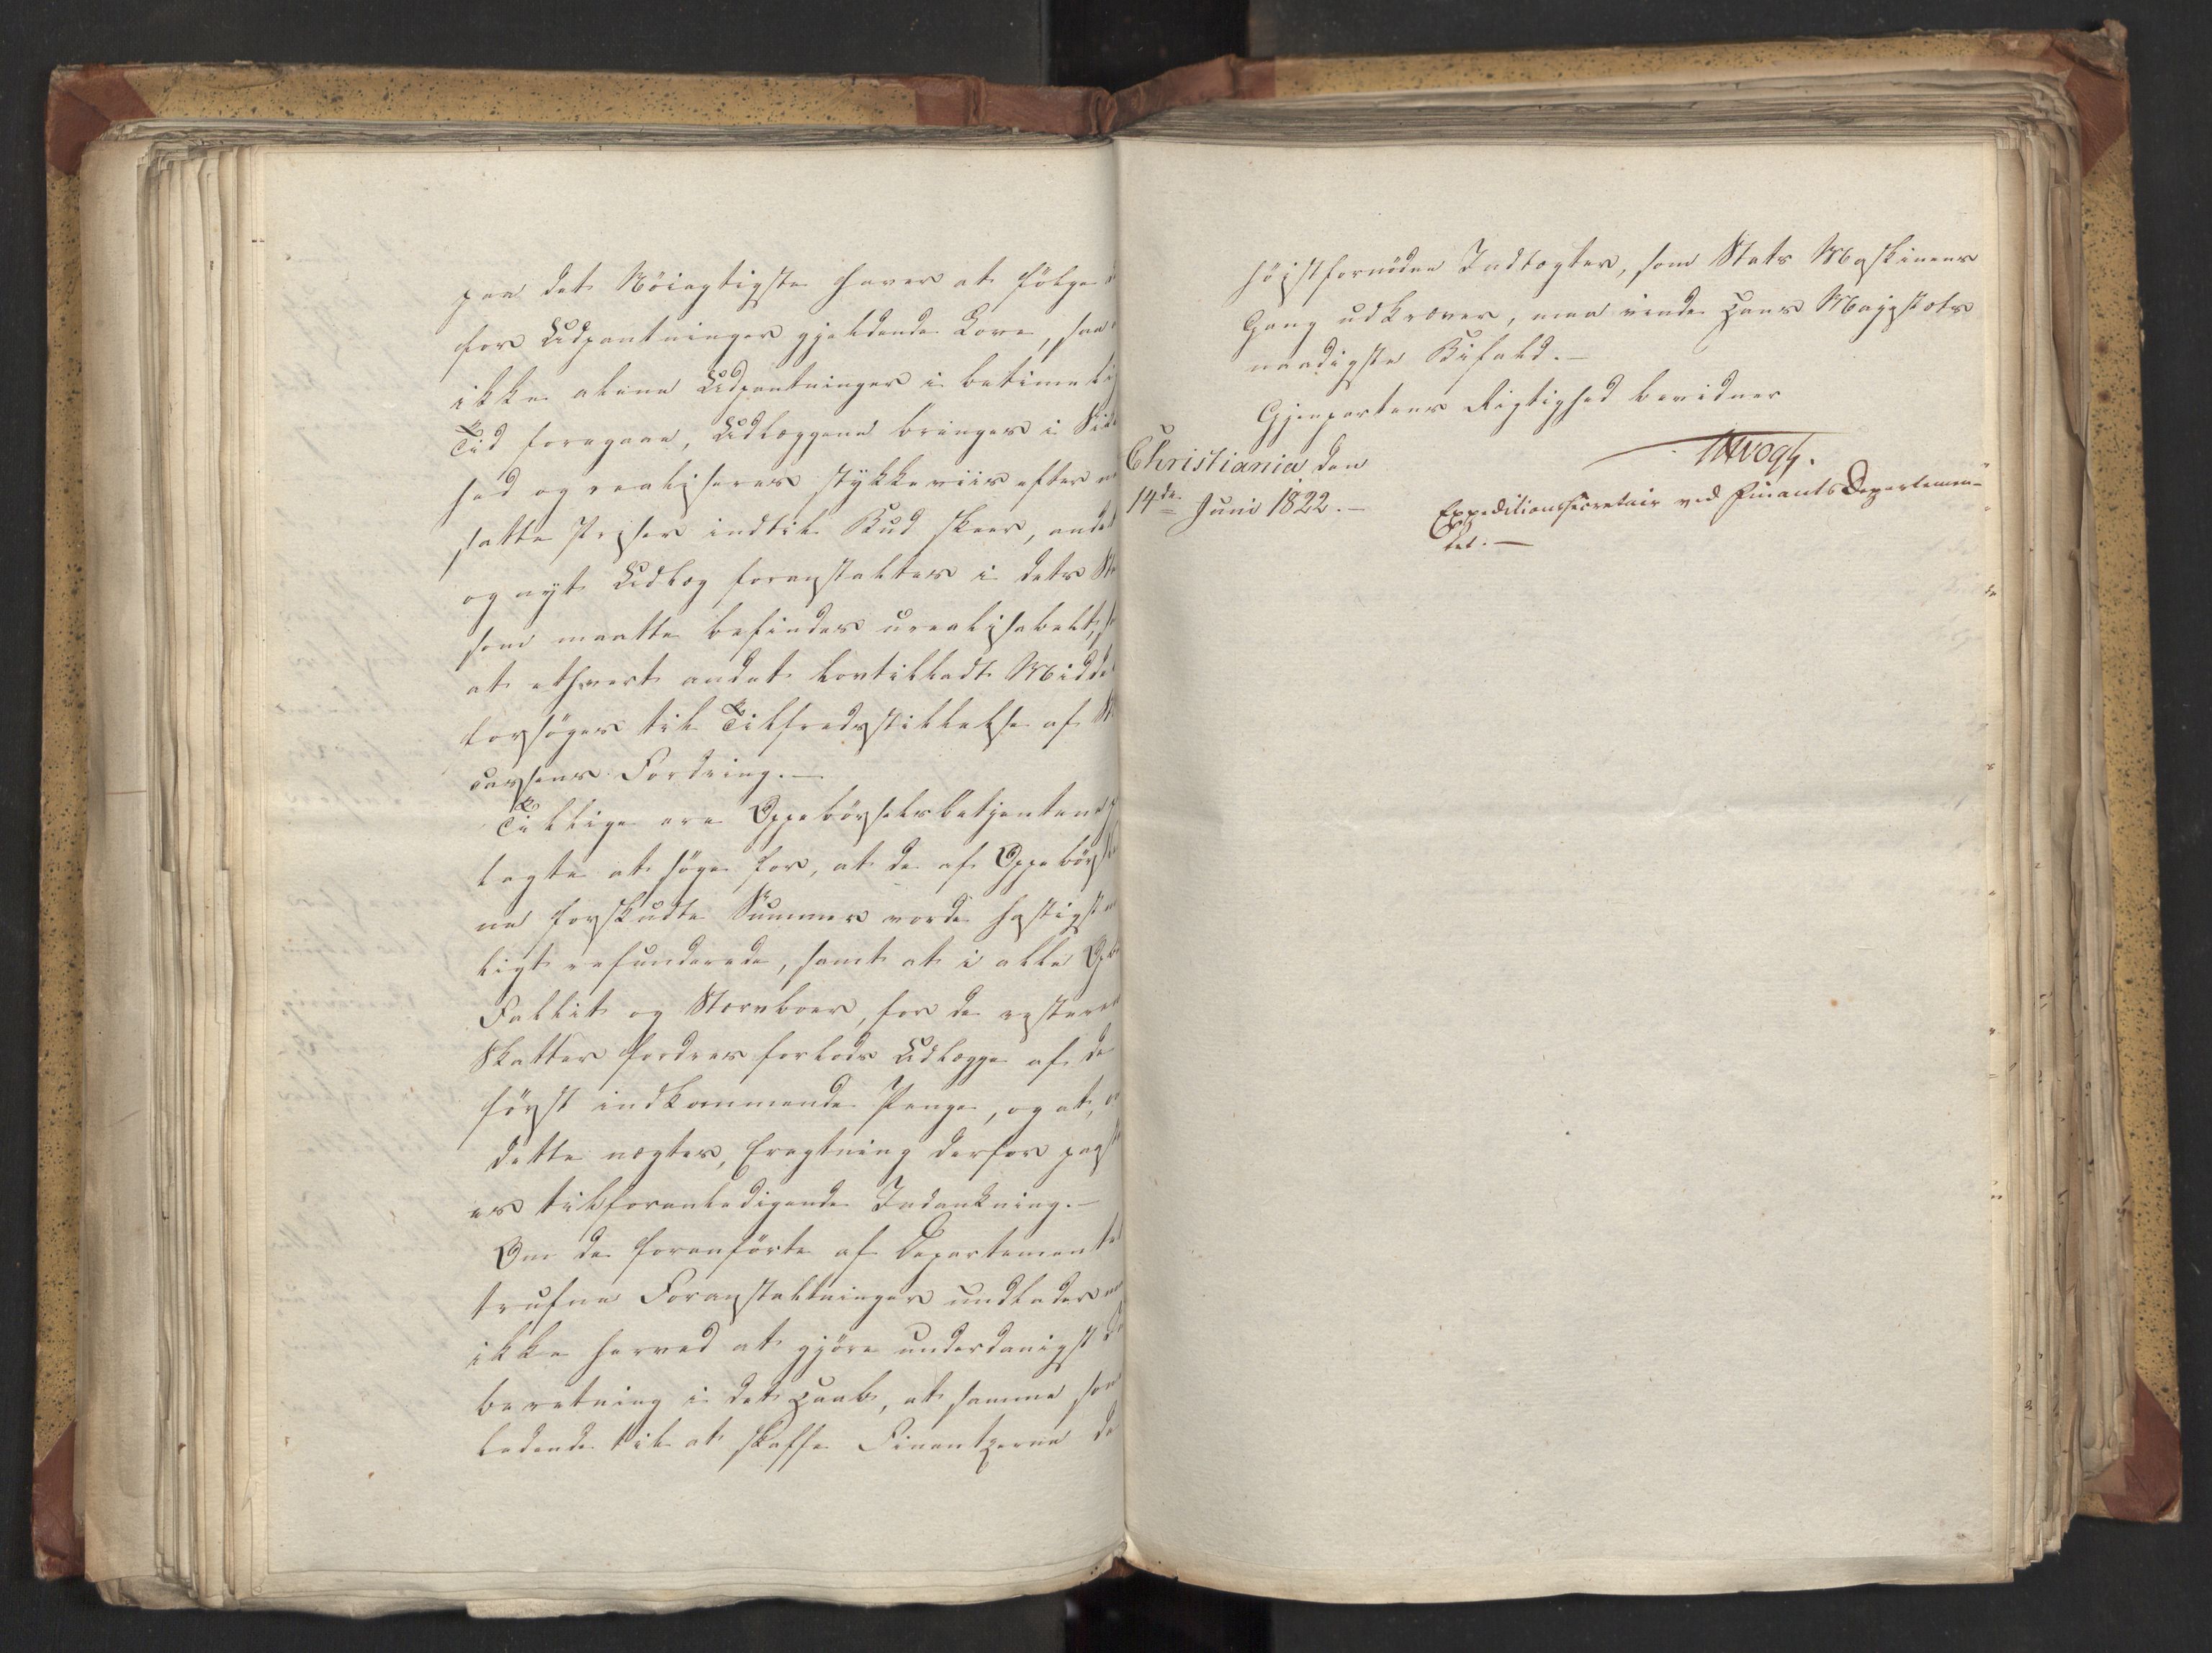 paa det Nöiagtigste haver at fölge
for Udpantninger gjeldende Love, saa
ikke alene Udpantninger i betimelig
Tid foregaae, Udlæggene bringes i Sik
hed og realiseres stykkeviis efter
satte Priser indtil Bud skeer, andet
og nyt Udlæg foranstaltes i dets St
som maatte befindes urealisabelt,
at ethvert andet lovtilladt Middel
forsöges til Tilfredsstillelse af St
cassens Fordring.—
Tillige ere OppebörselsBetjentene
lagte at söge for, at de af Oppebörs
ne forskudte Summer vorde hastigst
ligt refunderede, samt at i alle
Fallit og Stervboer, for de resteren
Skatter fordres forlods Udlægge af de
först indkommende Penge, og at,
dette nægtes, Eragtning derfor paast
es til foranledigende Indankning.—
Om de foranförte af Departementet
trufne Foranstaltninger undlader
ikke herved at gjöre underdanigst
beretning i det Haab, at samme som
ledende til at skaffe Finantzerne de
höistfornödne Indtægter, som Stats Maskinens
Gang udkræver, maa vinde Hans Majestæts
naadigste Bifald.—
Gjenpartens Rigtighed bevidner
Christiania den
14de Juni 1822.—
Vogt.
Expeditionssecretair ved Finants Departemen-
tet.—